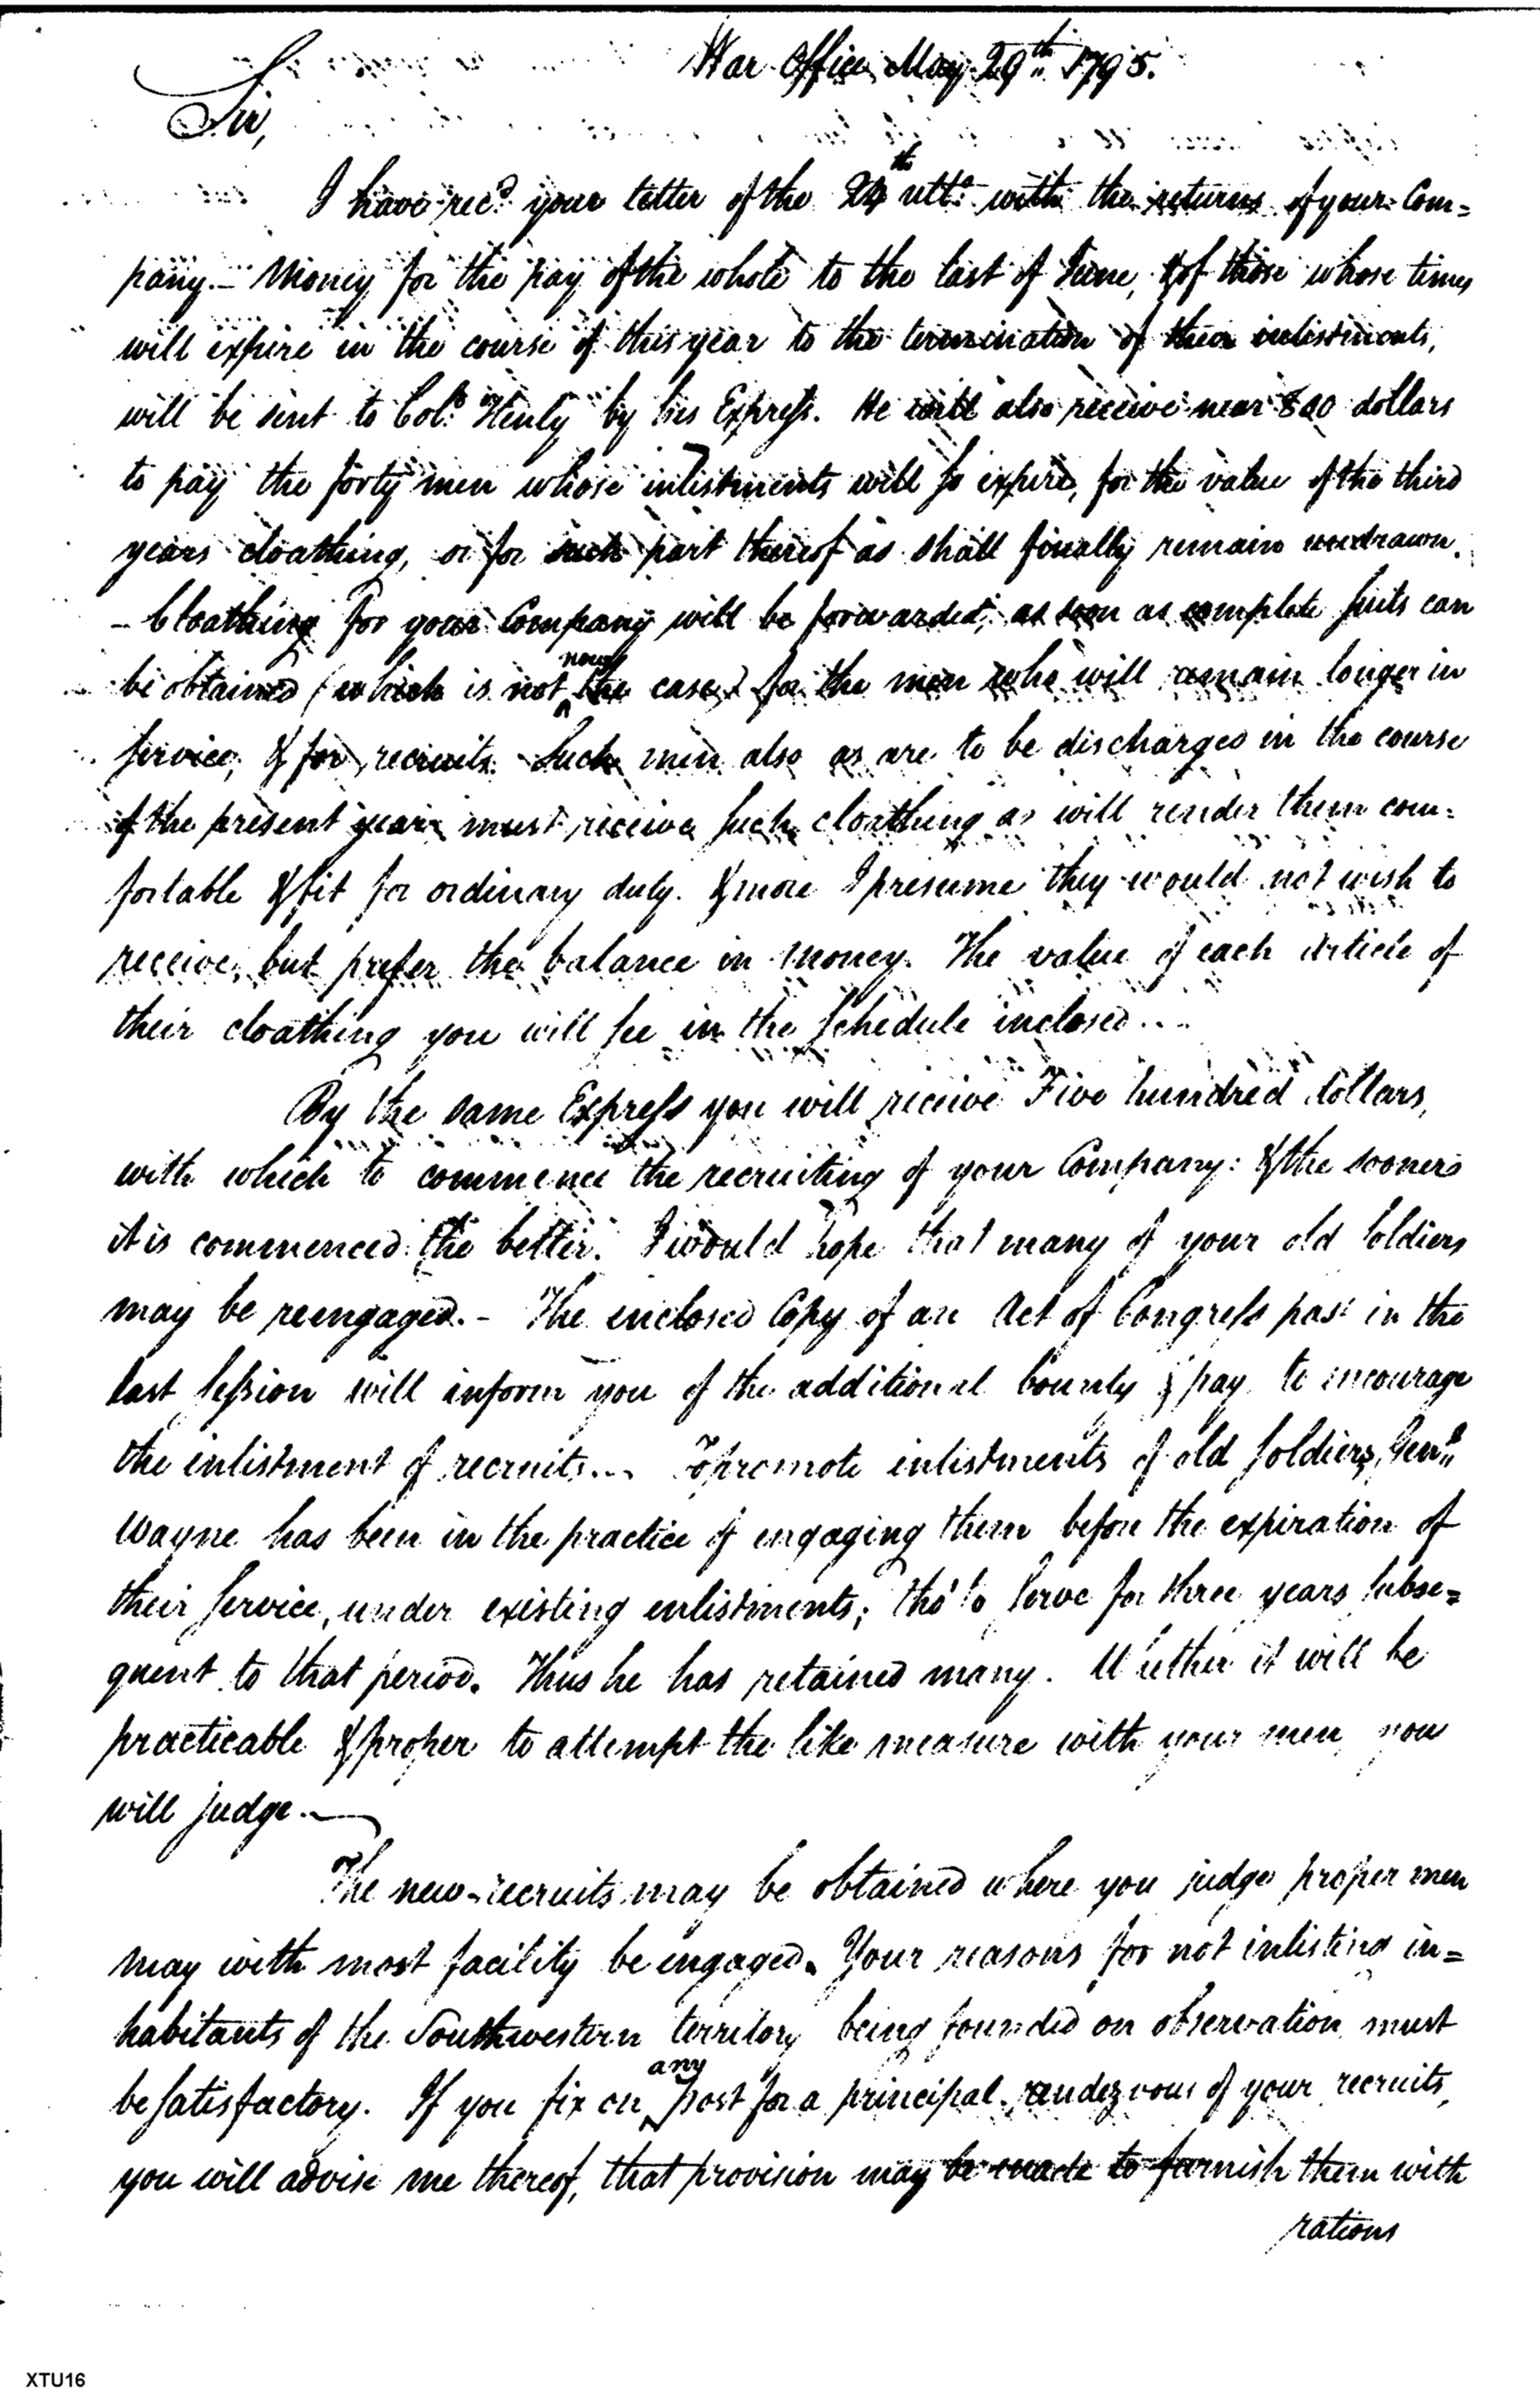 War Office, May 29th 1795.
Sir,
I have recd. your letter of the 24th ulto. with the returns of your Com=
pany. - Money for the pay of the whole to the last of June, & of those whose times
will expire in the course of this year to the termination of their inlistments,
will be sent to Colo. Henly by his Express. He will also receive near 800 dollars
to pay the forty men whose inlistments will so expire, for the value of the third
years cloathing, or for such part thereof as shall finally remain undrawn.
- Cloathing for your Company will be forwarded, as soon as complete suits can
be obtained (which is not now the case) for the men who will remain longer in
service, & for recruits. Such men also as are to be discharged in the course
of the present year must receive such cloathing as will render them com=
fortable & fit for ordinary duty. & more I presume they would not wish to
receive, but prefer the balance in money. The value of each article of
their cloathing you will see in the schedule inclosed...
By the same Express you will receive Five hundred dollars,
with which to commence the recruiting of your Company: & the sooner
it is commenced the better. I would hope that many of your old soldiers
may be reengaged. - The enclosed Copy of an Act of Congress past in the
last session will inform you of the additional bounty & pay to encourage
the inlistment of recruits... To promote inlistments of old soldiers, Genl.
Wayne has been in the practice of engaging them before the expiration of
their service, under existing enlistments; tho' to serve for three years subse=
quent to that period. Thus he has retained many. Whether it will be
practicable & proper to attempt the like measure with your men you
will judge.
The new recruits may be obtained where you judge proper men
may with most facility be engaged. Your reasons for not inlisting in=
habitants of the Southwestern territory being founded on observation must
be satisfactory. If you fix on any post for a principal rendezvous of your recruits,
you will advise me thereof, that provision may be made to furnish them with
rations
XTU16